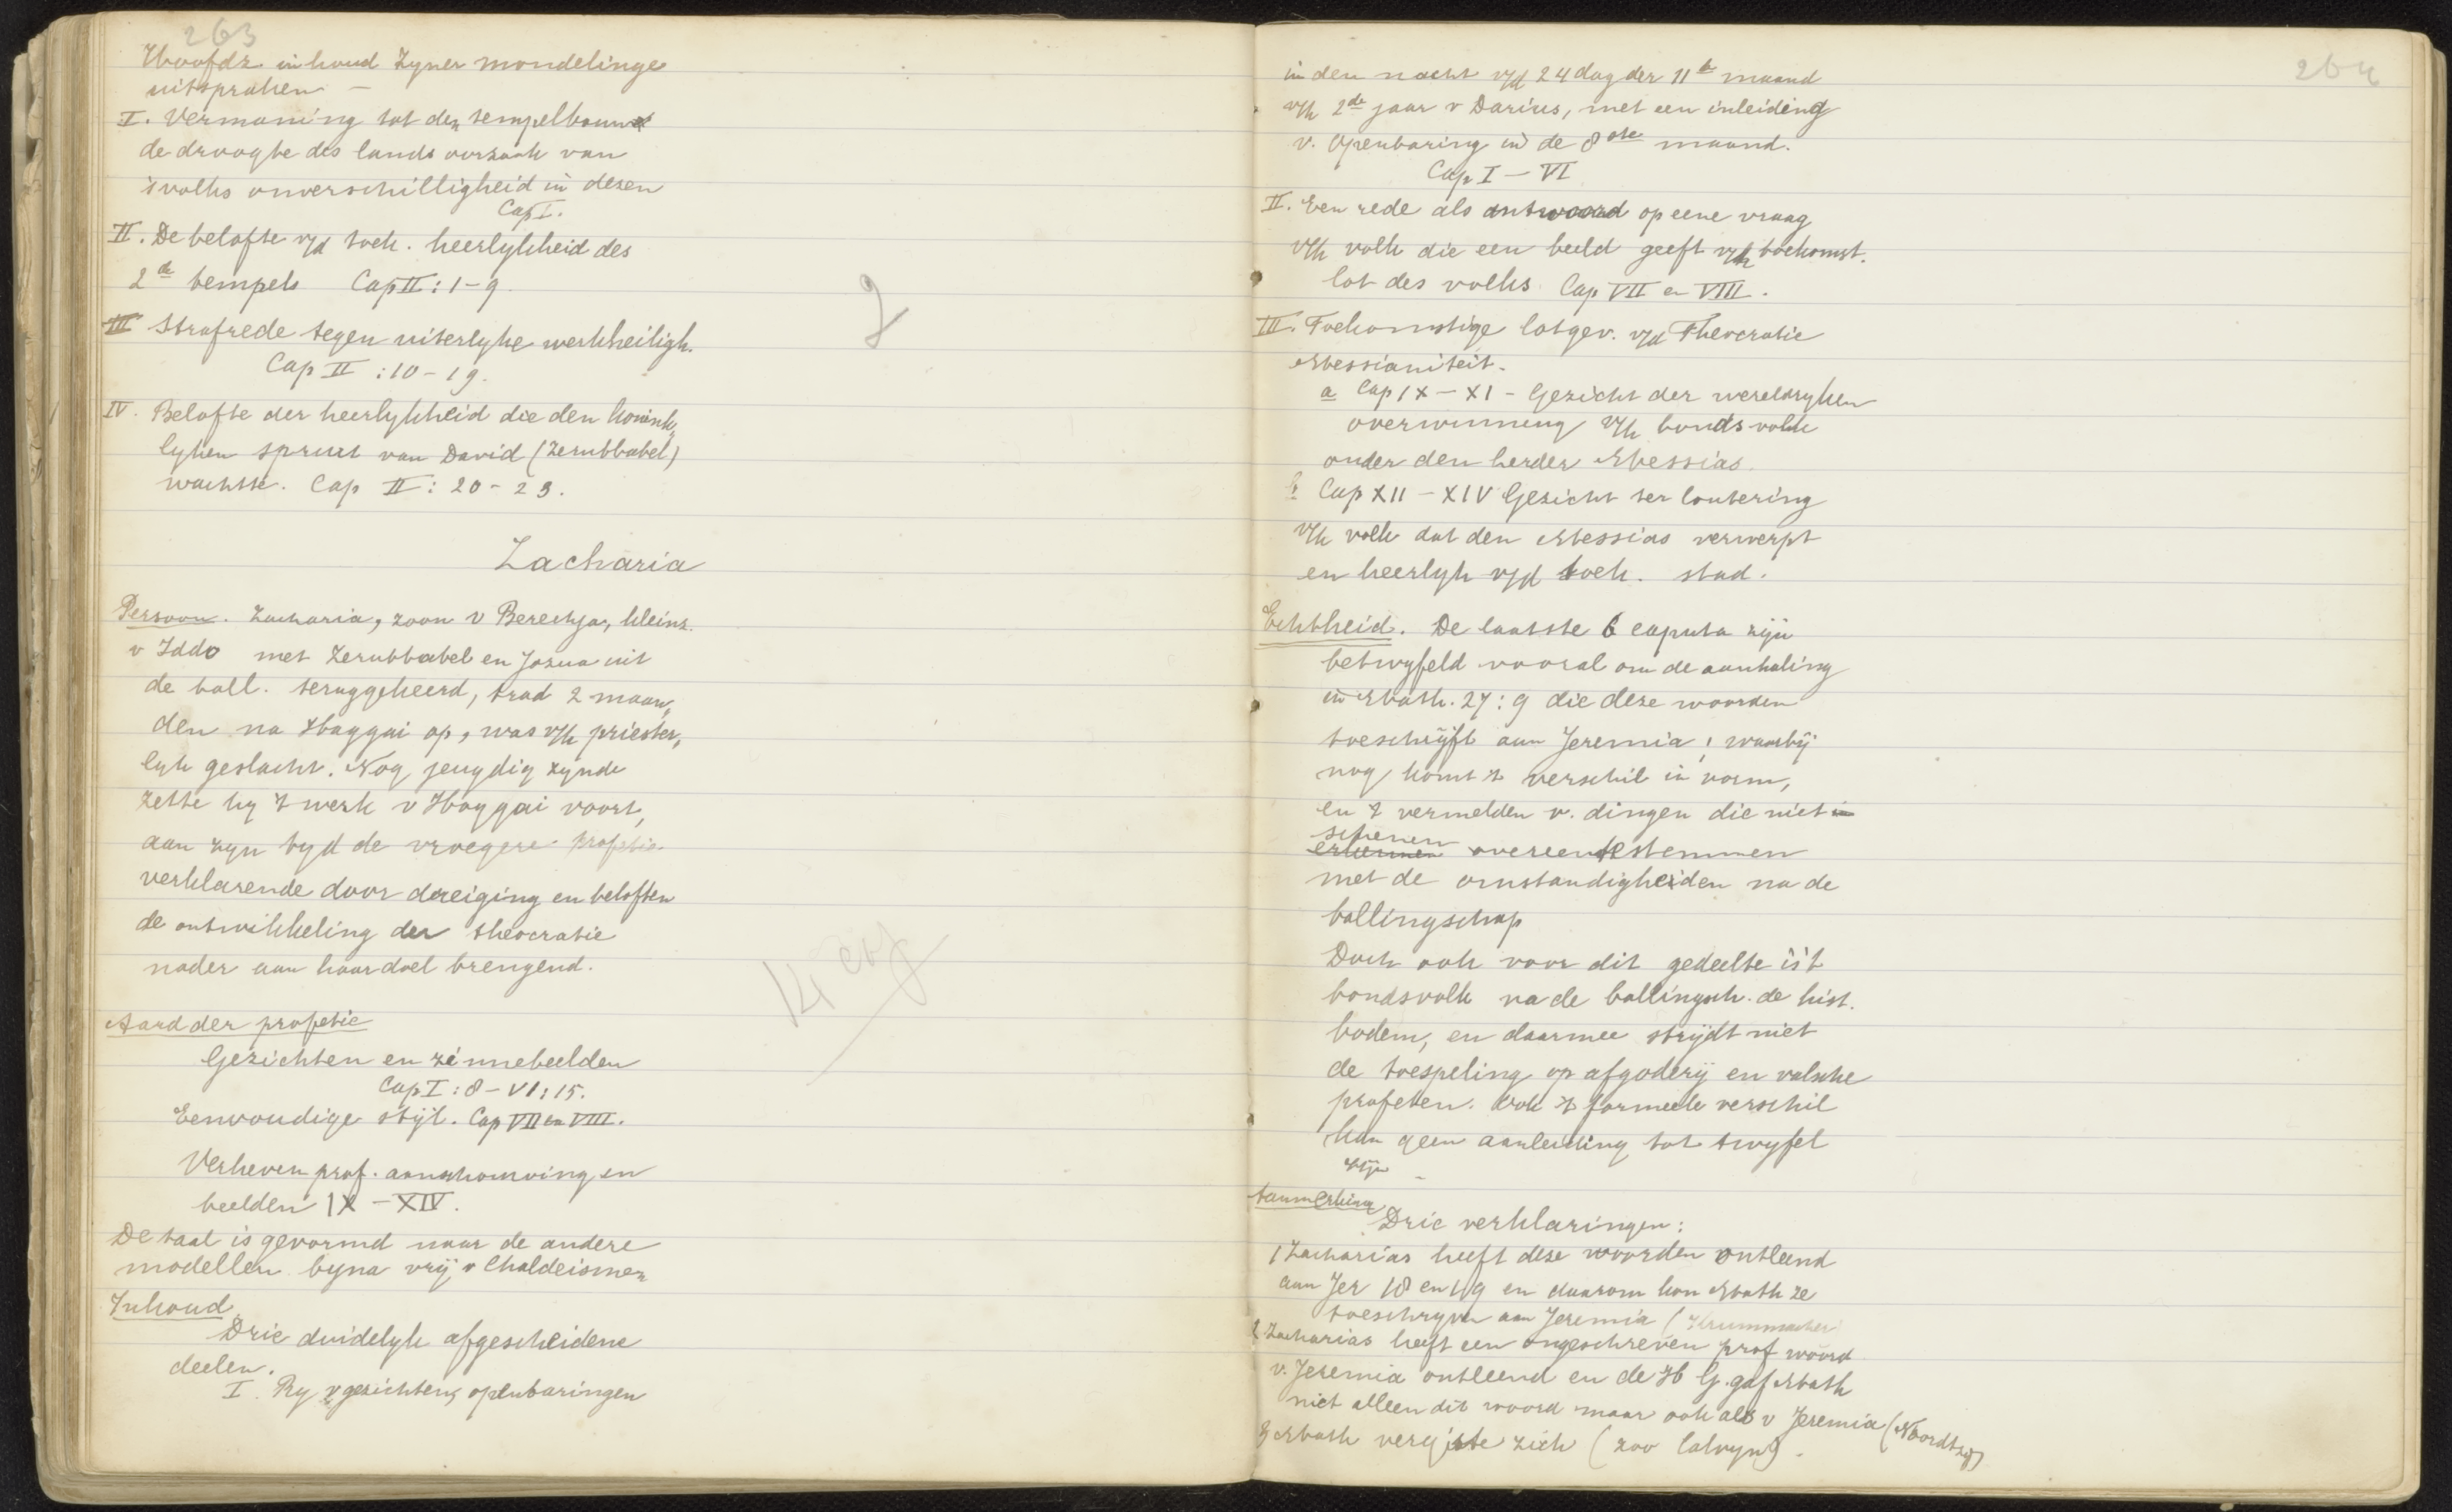 263
Hoofdz. inhoud zyner mondelinge
uitspraken —
I. Vermaning tot den tempelbouw
de droogte des lands oorzaak van
's volks onverschilligheid in dezen
Cap I.
II. De belofte v/d toek. heerlykheid des
2de tempels Cap II : 1 - 9.
III Strafrede tegen uiterlyke werkheiligh.
Cap II : 10 - 19.
IV. Belofte der heerlykheid die den konink„
lyken spruit van David (Zerubbabel)
wachtte. Cap II : 20 - 23.
Zacharia
Persoon. Zacharia, zoon v Berechja, kleinz.
v Iddo met Zerubbabel en Jozua uit
de ball. teruggekeerd, trad 2 maan„
den na Haggai op, was v/h priester„
lyk geslacht. Nog jeugdig zynde
zette hy 't werk v Haggai voort,
aan zyn tyd de vroegere profetie
verklarende door dreiging en beloften
de ontwikkeling der theocratie
nader aan haar doel brengend.
Aard der profetie
Gezichten en zinnebeelden
Cap I : 8 - VI : 15.
Eenvoudige stijl. Cap VII en VIII.
Verheven prof. aanschouwing en
beelden IX - XIV.
De taal is gevormd naar de andere
modellen byna vrij v Chaldeismen
Inhoud
Drie duidelyk afgescheidene
deelen.
I. Ry v gezichten, openbaringen
264
in den nacht v/d 24 dag der 11e maand
v/h 2de jaar v Darius, met een inleiding
v. openbaring in de 8ste maand.
Cap I - VI
II. Een rede als antwoord op eene vraag
v/h volk die een beeld geeft v/h toekomst.
lot des volks Cap VII en VIII.
III. Toekomstige lotgev. v/d Theocratie
Messianiteit.
a Cap IX - XI - Gezicht der wereldryken
overwinning v/h bondsvolk
onder den herder Messias.
b Cap XII - XIV Gezicht ter loutering
v/h volk dat den Messias verwerpt
en heerlyk v/d toek. stad.
Echtheid. De laatste 6 caputa zijn
betwyfeld vooral om de aanhaling
in Matth. 27 : 9 die deze woorden
toeschijft aan Jeremia, waarbij
nog komt 't verschil in vorm,
en 't vermelden v. dingen die niet
schenen
overeen te stemmen
met de omstandigheiden na de
ballingschap
Doch ook voor dit gedeelte is 't
bondsvolk na de ballingsch. de hist.
bodem, en daarmee strijdt niet
de toespeling op afgoderij en valsche
profeten. Ook 't formeele verschil
kan geen aanleiding tot twyfel
zijn -
Aanmerking
Drie verklaringen:
1 Zacharias heeft deze woorden ontleend
aan Jer 18 en 19 en daarom kon Math ze
toeschryven aan Jeremia (Krummacher
2 Zacharias heeft een ongeschreven prof woord
v. Jeremia ontleend en de H G. gaf Math
niet alleen dit woord maar ook als v Jeremia (Noordtzy)
3 Math vergiste zich (zoo Calvyn).